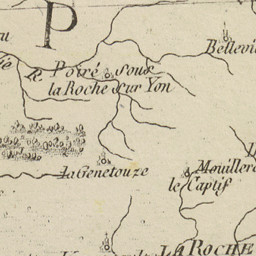 P
Bellevi
Poiré sous
la Roche sur Yon
la Genetouze
Mouillere
le Captif
LA ROCHE